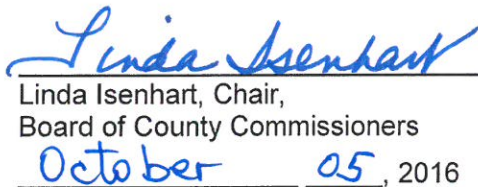 Linda Isenhart
Linda Isenhart, Chair,
Board of County Commissioners
October 05, 2016